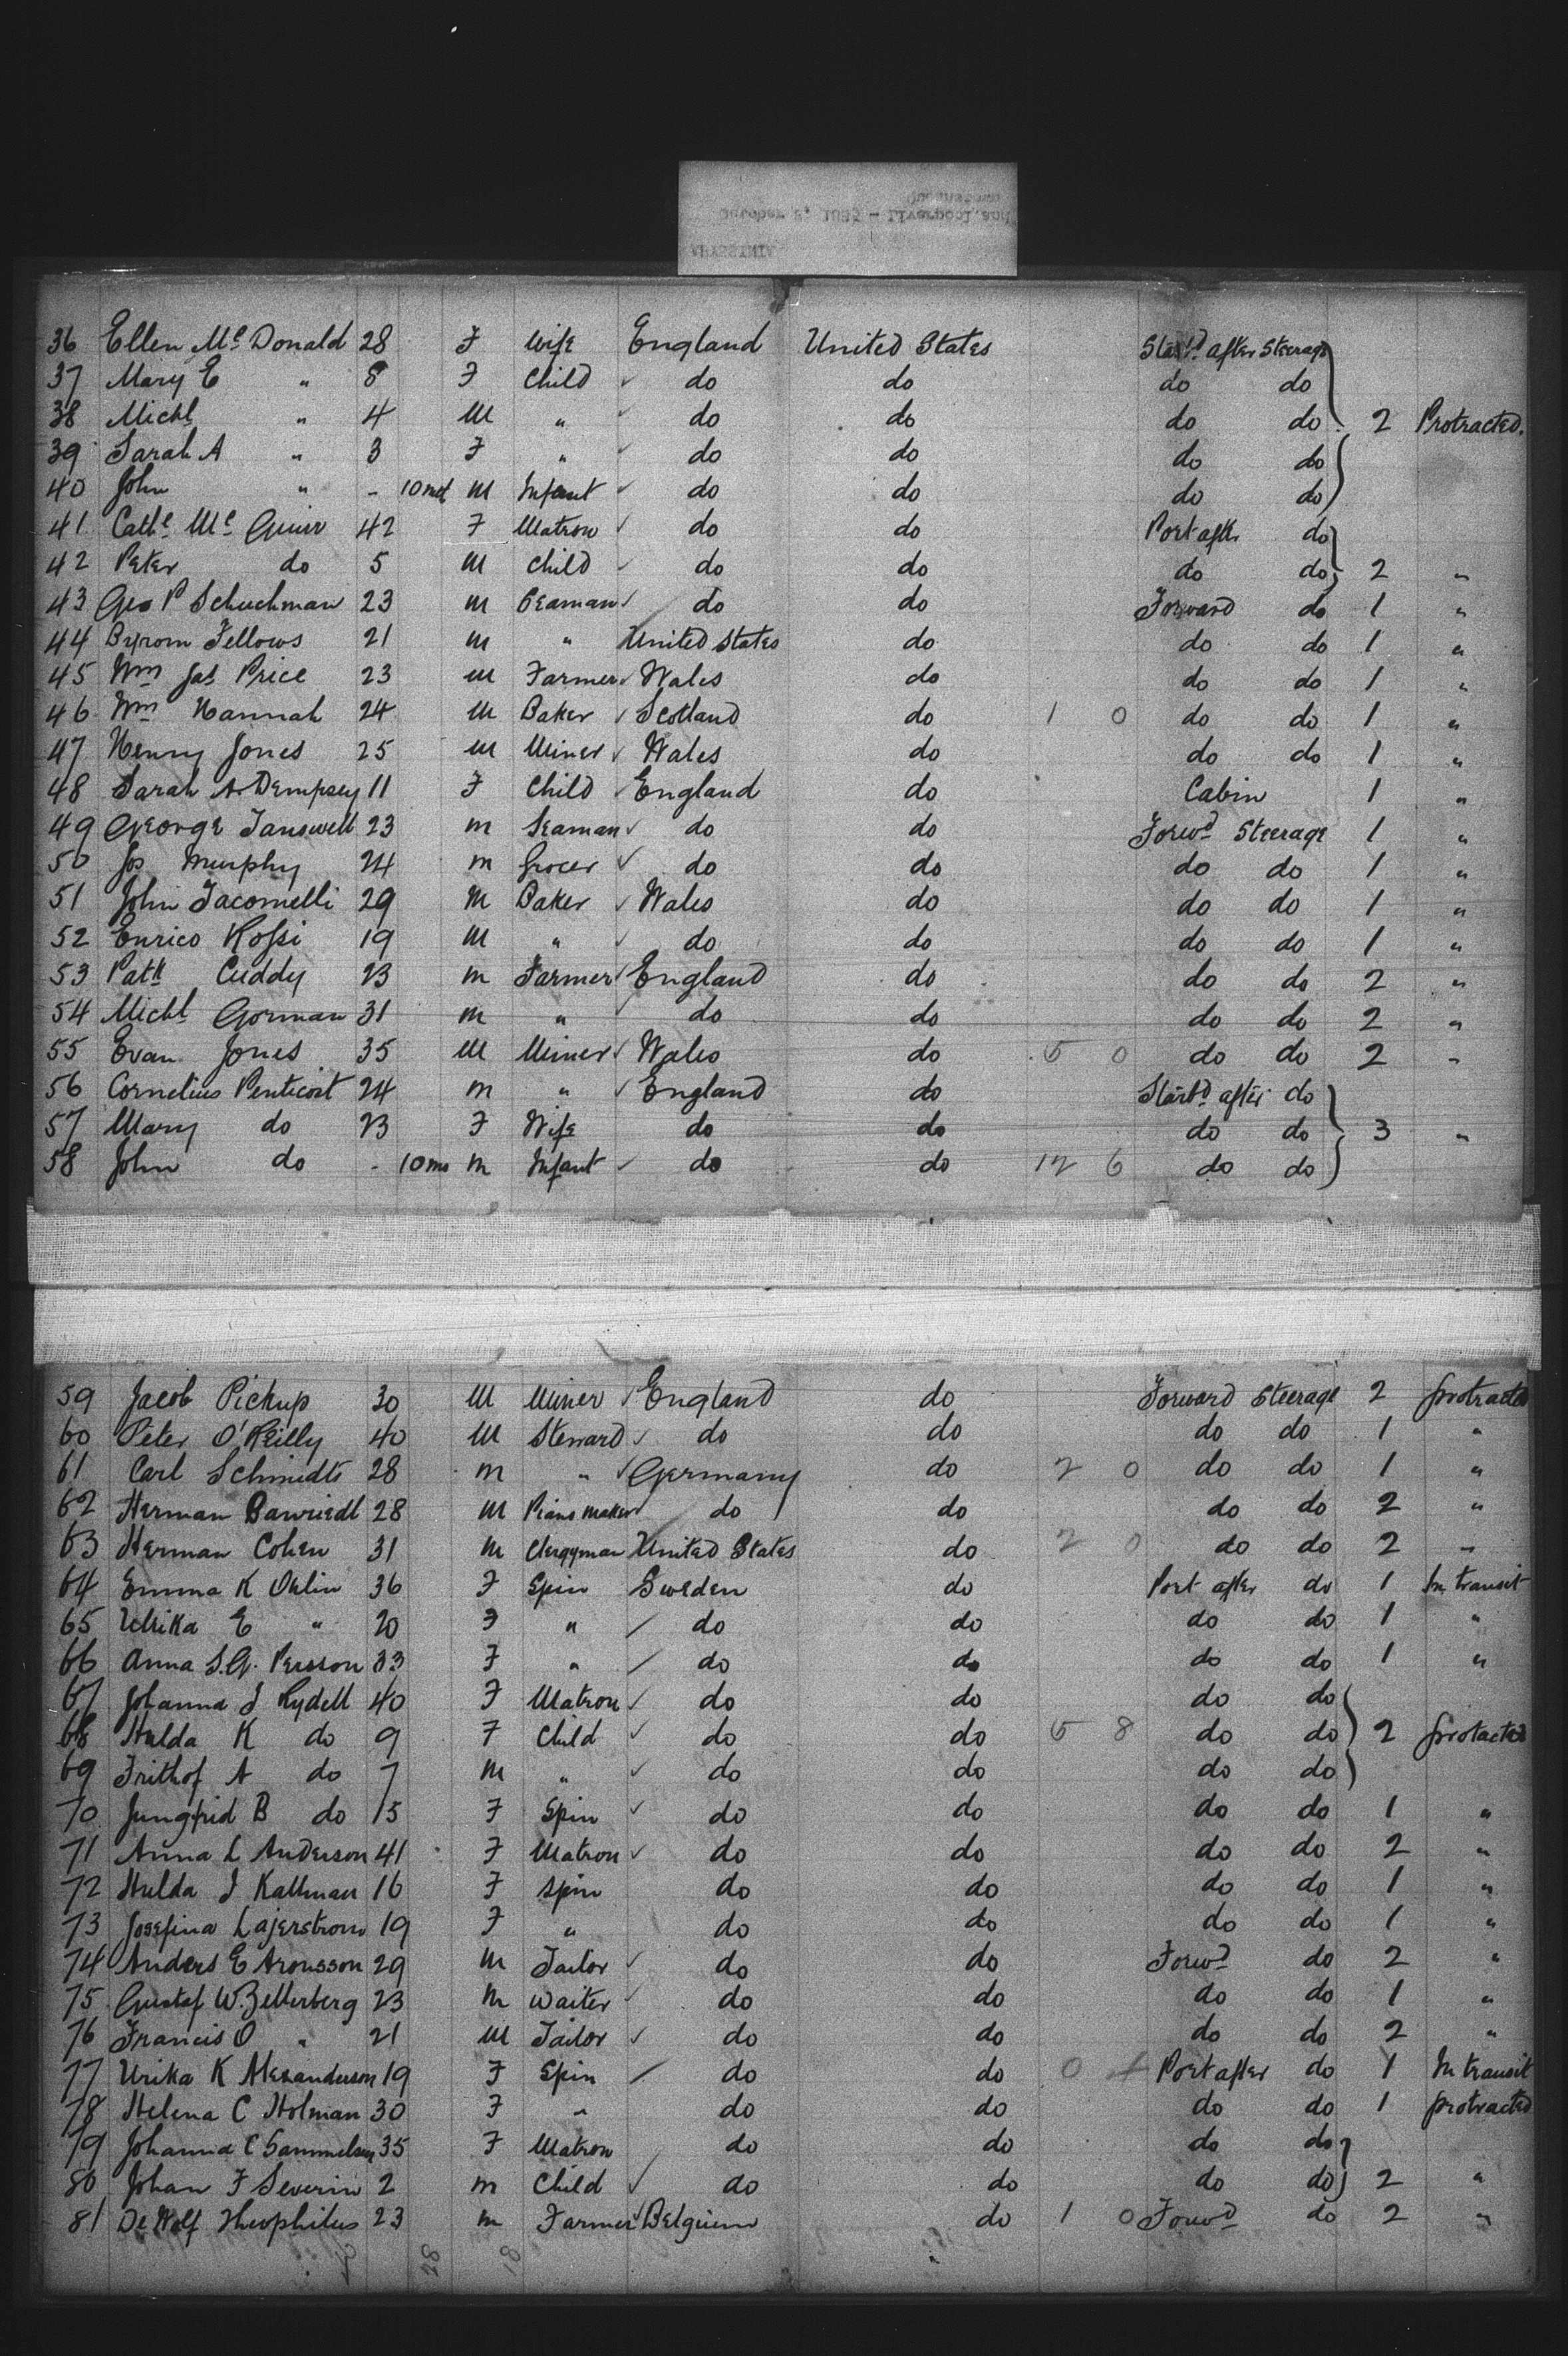 October 5, 1895 - Liverpool and
Queenstown
36 Ellen Mc Donald 28 F Wife England United States Starbd after Steerage
37 Mary E " 8 F Child ✓ do do do do
38 Michl " 4 M " ✓ do do do do 2 Protracted.
39 Sarah A " 3 F " ✓ do do do do
40 John " - 10 mos M Infant ✓ do do do do
41 Cathe Mc Guirr 42 F Matron ✓ do do Port after do
42 Peter do 5 M Child ✓ do do do do 2 "
43 Geo P Schuchman 23 M Seaman ✓ do do Forward do 1 "
44 Byrom Fellows 21 M " United States do do do 1 "
45 Wm Jas Price 23 M Farmer ✓ Wales do do do 1 "
46 Wm Hannah 24 M Baker ✓ Scotland do 1 0 do do 1 "
47 Henry Jones 25 M Miner ✓ Wales do do do 1 "
48 Sarah A Dempsey 11 F Child ✓ England do Cabin 1 "
49 George Tanswell 23 M Seaman ✓ do do Forwd Steerage 1 "
50 Jos Murphy 24 M Grocer ✓ do do do do 1 "
51 John Jacomelli 29 M Baker ✓ Wales do do do 1 "
52 Enrico Rossi 19 M " ✓ do do do do 1 "
53 Patk Cuddy 23 M Farmer ✓ England do do do 2 "
54 Michl Gorman 31 M " ✓ do do do do 2 "
55 Evan Jones 35 M Miner ✓ Wales do 5 0 do do 2 "
56 Cornelius Penticost 24 M " ✓ England do Starbd after do
57 Mary do 23 F Wife do do do do 3 "
58 John do - 10 mos M Infant ✓ do do 12 6 do do
59 Jacob Pickup 30 M Miner ✓ England do Forward Steerage 2 protracted
60 Peter O'Reilly 40 M Steward ✓ do do do do 1 "
61 Carl Schmidts 28 M " ✓ Germany do 2 0 do do 1 "
62 Herman Bawriedl 28 M Piano Maker ✓ do do do do 2 "
63 Herman Cohen 31 M Clergyman United States do 2 0 do do 2 "
64 Emma K Ohlin 36 F Spin Sweden do Port after do 1 In transit
65 Ulrika E " 20 F " / do do do do 1 "
66 Anna S.G. Persson 33 F " / do do do do 1 "
67 Johanna J Rydell 40 F Matron ✓ do do do do
68 Hulda K do 9 F Child ✓ do do 5 8 do do 2 protacted
69 Frithof A do 7 M " ✓ do do do do
70 Jungfrid B do 15 F Spin ✓ do do do do 1 "
71 Anna L Anderson 41 F Matron ✓ do do do do 2 "
72 Hulda J Kallman 16 F Spin do do do do 1 "
73 Josefina Lajerstrom 19 F " do do do do 1 "
74 Anders E Aronsson 29 M Tailor ✓ do do Forwd do 2 "
75 Gustaf W. Zetterberg 23 M Waiter ✓ do do do do 1 "
76 Francis O " 21 M Tailor ✓ do do do do 2 "
77 Urika K Alexanderson 19 F Spin / do do 0 Port after do 1 In transit
78 Helena C Holman 30 F " do do do do 1 protracted
79 Johanna C Sammelson 35 F Matron do do do do
80 Johan F Severin 2 M Child ✓ do do do do 2 "
81 De Wolf Theophilus 23 M Farmer ✓ Belgium do 1 0 Forwd do 2 "
28 18